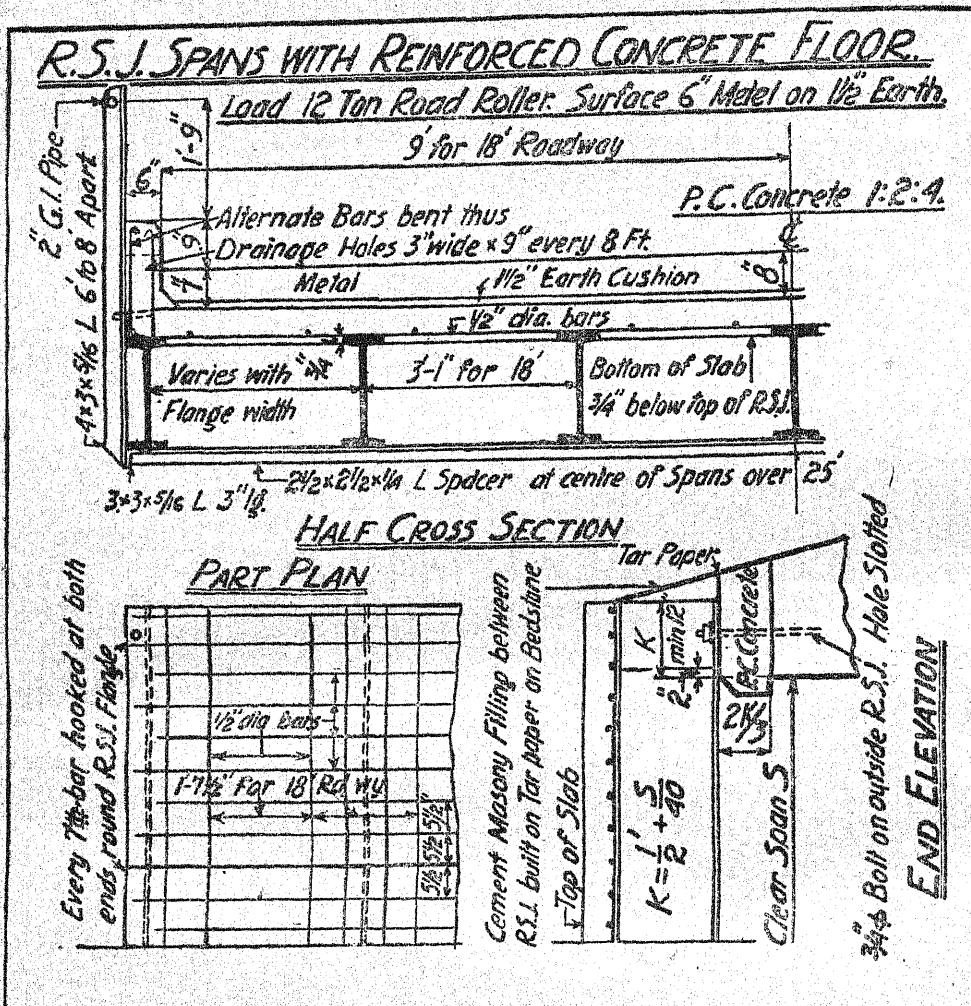 R.S.J. SPANS WITH REINFORCED CONCRETE FLOOR.
Load 12 Ton Road Roller. Surface 6" Metal on 1½" Earth.
9' for 18' Roadway
P.C. Concrete 1:2:4.
2" G.I. Pipe
4×3×5/16 L 6' to 8' Apart
1'-9"
6"
9"
7"
Alternate Bars bent thus
Drainage Holes 3" wide × 9" every 8 Ft.
Metal
1½" Earth Cushion
8"
½" dia. bars
Varies with
Flange width
3'-1" for 18'
Bottom of Slab
3/4" below top of R.S.J.
3×3×5/16 L 3" lg.
2½×2½×¼ L Spacer at centre of Spans over 25'
HALF CROSS SECTION
PART PLAN
Every 7th bar hooked at both
ends round R.S.J. Flange
½" dia bars
1'-7½" For 18' Rd wy
5½" 5½" 5½"
Cement Masony Filling between
R.S.J. built on Tar paper on Bedstone
Tar Paper
Top of Slab
K
min 12"
2"
P.C. Concrete
K = 1'/2 + S/40
Clear Span S
¾"ɸ Bolt on outside R.S.J. Hole Slotted
END ELEVATION